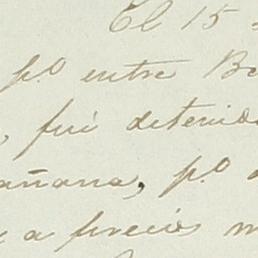 El 15
p.º entre Be
, fué detenido
añana, p.º
a precios m